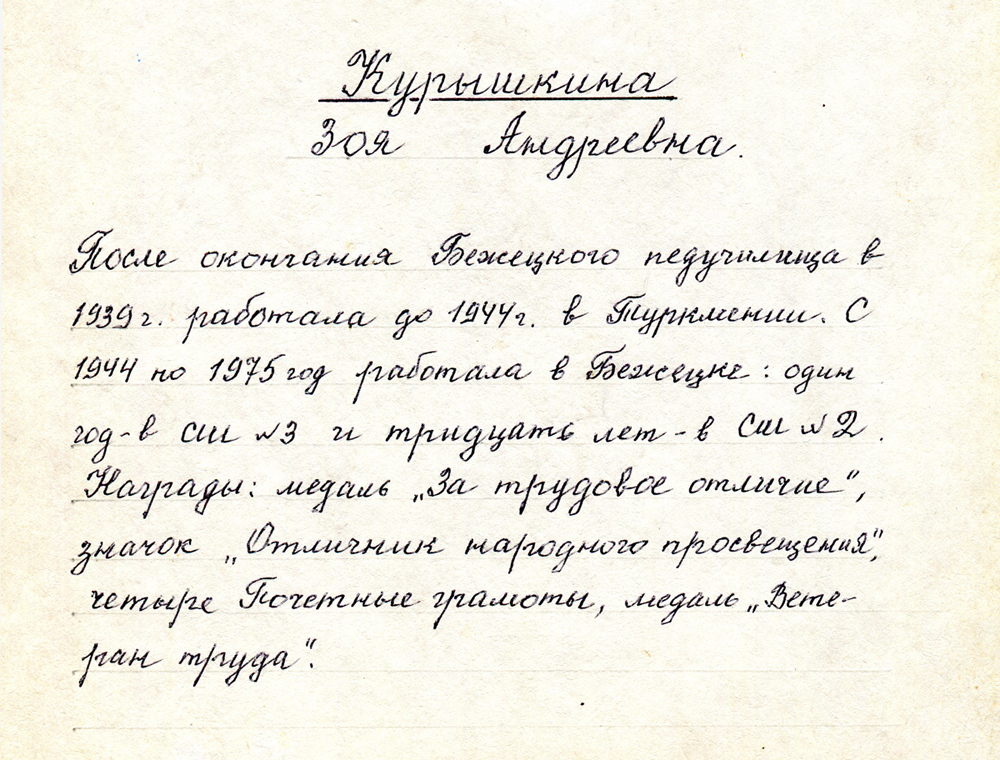 Курышкина
Зоя Андреевна.
После окончания Бежецкого педучилища в
1939г. работала до 1944г. в Туркмении. С
1944 по 1975 год работала в Бежецке: один
год-в СШ №3 и тридцать лет-в СШ №2.
Награды: медаль „За трудовое отличие",
значок „Отличник народного просвещения",
четыре Почетные грамоты, медаль „Вете-
ран труда".